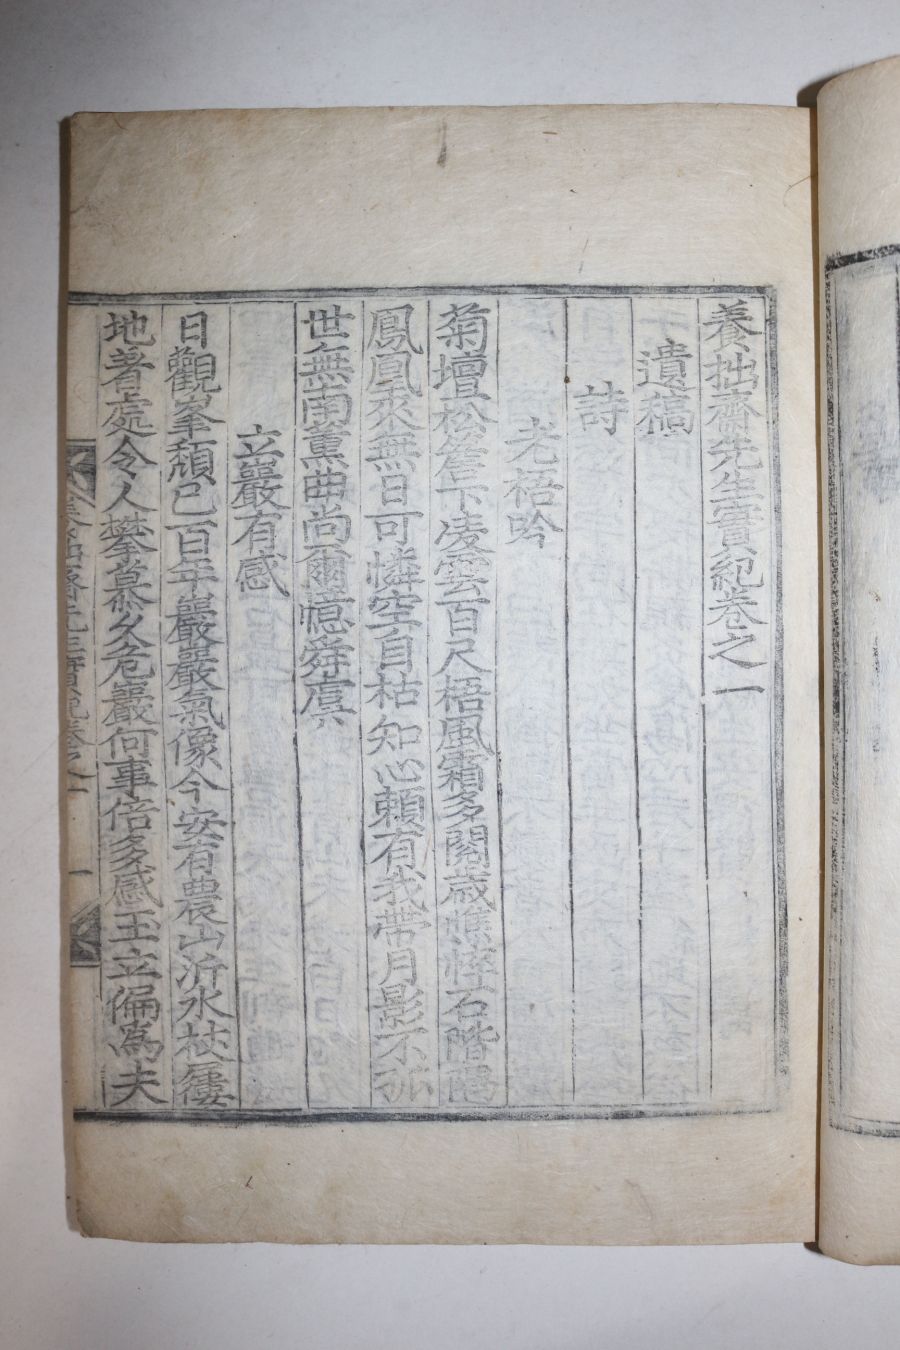 養拙齋先生實紀卷之一
遺稿
詩
老梧吟
菊壇松簷下凌雲百尺梧風霜多閱歲憔悴石階隅
鳳凰來無日可憐空自枯知心賴有我帶月影不孤
世無南薰曲尚爾憶舜虞
立巖有感
日觀峯頹已百年巖巖氣像今安有農山沂水杖屨
地著處令人攀慕久危巖何事倍多感玉立偏爲夫
養拙齋先生實紀卷之一 一